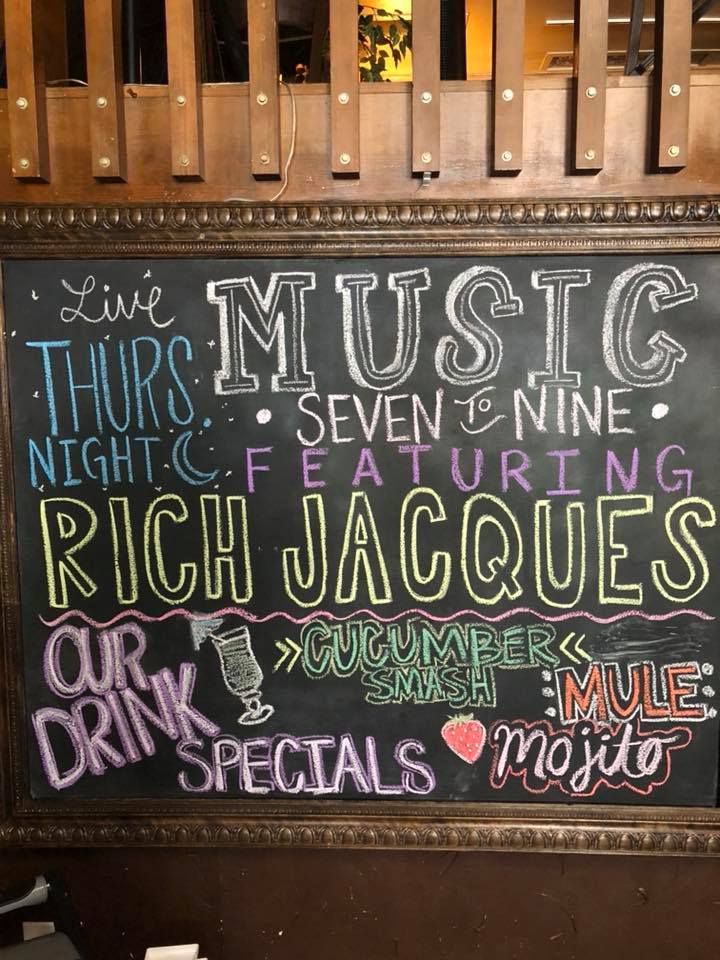 Live MUSIC
THURS. NIGHT
• SEVEN TO NINE •
FEATURING
RICH JACQUES
OUR DRINK SPECIALS
»CUCUMBER«
SMASH
MULE
mojito